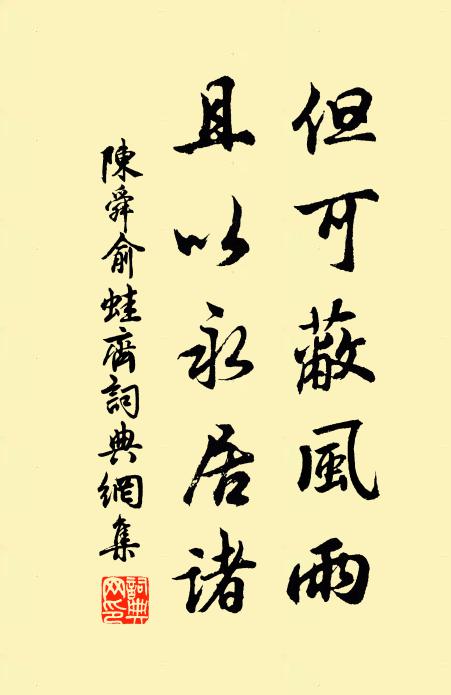 但可蔽風雨
且以永居諸
陳舜俞蛙齋詞典網集
詞典网印